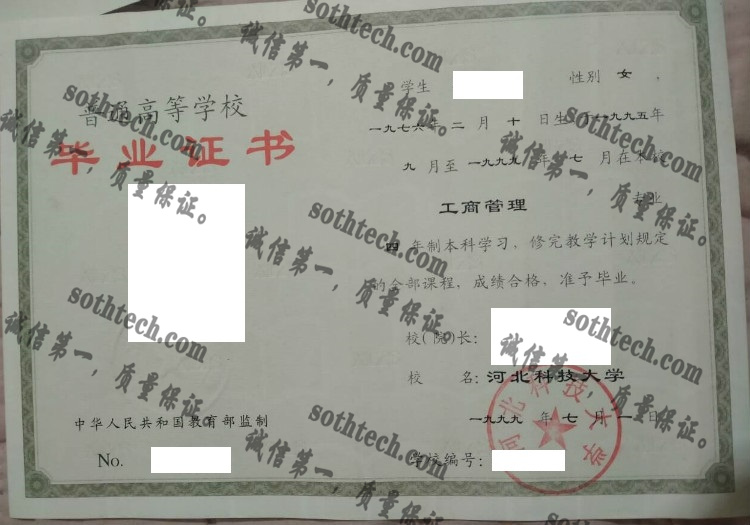 普通高等学校
毕业证书
中华人民共和国教育部监制
No.
学生 性别 女 ，
一九七六年 二 月 十 日生，于一九九五年
九 月至 一九九九 年 七 月在本校
工商管理 专业
四 年制本科学习，修完教学计划规定
的全部课程，成绩合格，准予毕业。
校(院)长：
校 名：河北科技大学
一九九九 年 七 月 一 日
学校编号：
河北科技大学
sothtech.com
诚信第一，质量保证。
sothtech.com
诚信第一，质量保证。
sothtech.com
诚信第一，质量保证。
sothtech.com
诚信第一，质量保证。
sothtech.com
诚信第一，质量保证。
sothtech.com
诚信第一，质量保证。
sothtech.com
诚信第一，质量保证。
sothtech.com
诚信第一，质量保证。